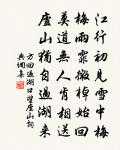 江行初見雪中梅
梅雨霏微棹始回
莫道無人肯相送
廬山猶自過湖來
方回過湖口望廬山詞
典詞集